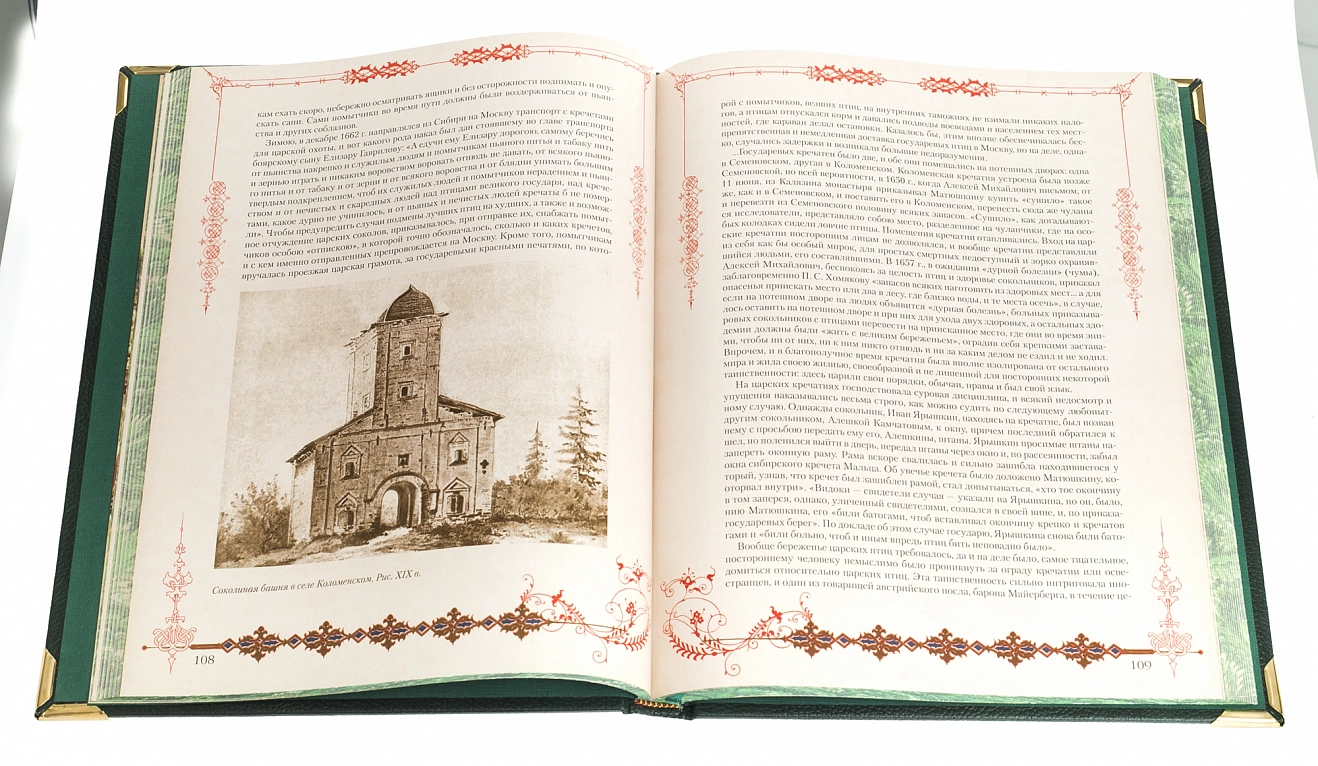 кам ехать скоро, небрежно осматривать ящики и без осторожности поднимать и опу-
скать сани. Сами помытчики во время пути должны были воздерживаться от пьян-
ства и других соблазнов.
Зимою, в декабре 1662 г. направлялся из Сибири на Москву транспорт с кречетами
для царской охоты, и вот какого рода наказ был дан стоявшему во главе транспорта
боярскому сыну Елизару Гаврилову: «А едучи ему Елизару дорогою, самому беречись
от пьянства накрепко и служилым людям и помытчикам пьяного питья и табаку пить
и зернью играть и никаким воровством воровать отнюдь не давать, от всякого пьяно-
го питья и от табаку и от зерни и от всякого воровства и от блядни унимать большим
твердым подкреплением, чтоб их служилых людей и помытчиков нерадением и пьян-
ством и от нечистых и скаредных людей над птицами великого государя, над крече-
тами, какое дурно не учинилось, и от пьяных и нечистых людей кречаты б не помер-
ли». Чтобы предупредить случаи подмены лучших птиц на худших, а также и возмож-
ное отчуждение царских соколов, приказывалось, при отправке их, снабжать помыт-
чиков особою «отпискою», в которой точно обозначалось, сколько и каких кречетов,
и с кем именно отправленных препровождается на Москву. Кроме того, помытчикам
вручалась проезжая царская грамота, за государевыми красными печатями, по кото-
Соколиная башня в селе Коломенском. Рис. XIX в.
108
рой с помытчиков, везших птиц, на внутренних таможнях не взимали никаких нало-
гов, а птицам отпускался корм и давались подводы воеводами и населением тех мест-
ностей, где караван делал остановки. Казалось бы, этим вполне обеспечивалась бес-
препятственная и немедленная доставка государевых птиц в Москву, но на деле, одна-
ко, случались задержки и возникали большие недоразумения.
...Государевых кречатен было две, и обе они помещались на потешных дворах: одна
в Семеновском, другая в Коломенском. Коломенская кречатня устроена была позже
Семеновской, по всей вероятности, в 1650 г., когда Алексей Михайлович письмом, от
11 июня, из Калязина монастыря приказывал Матюшкину купить «сушило» такое
же, как и в Семеновском, и поставить его в Коломенском, перенесть сюда же чуланы
и перевезти из Семеновского половину всяких запасов. «Сушило», как догадывают-
ся исследователи, представляло собою место, разделенное на чуланчики, где на осо-
бых колодках сидели ловчие птицы. Помещения кречатни отапливались. Вход на цар-
ские кречатни посторонним лицам не дозволялся, и вообще кречатни представляли
из себя как бы особый мирок, для простых смертных недоступный и зорко охраняв-
шийся людьми, его составлявшими. В 1657 г., в ожидании «дурной болезни» (чумы),
Алексей Михайлович, беспокоясь за целость птиц и здоровье сокольников, приказал
заблаговременно П. С. Хомякову «запасов всяких наготовить из здоровых мест... а для
опасенья приискать место или два в лесу, где близко воды, и те места осечь», в случае,
если на потешном дворе на людях объявится «дурная болезнь», больных приказыва-
лось оставить на потешном дворе и при них для ухода двух здоровых, а остальных здо-
ровых сокольников с птицами перевести на приисканное место, где они во время эпи-
демии должны были «жить с великим береженьем», оградив себя крепкими застава-
ми, чтобы ни от них, ни к ним никто отнюдь и ни за каким делом не ездил и не ходил.
Впрочем, и в благополучное время кречатня была вполне изолирована от остального
мира и жила своею жизнью, своеобразной и не лишенной для посторонних некоторой
таинственности: здесь царили свои порядки, обычаи, нравы и был свой язык.
На царских кречатнях господствовала суровая дисциплина, и всякий недосмотр и
упущения наказывались весьма строго, как можно судить по следующему любопыт-
ному случаю. Однажды сокольник, Иван Ярышкин, находясь на кречатне, был позван
другим сокольником, Алешкой Камчатовым, к окну, причем последний обратился к
нему с просьбою передать ему его, Алешкины, штаны. Ярышкин просимые штаны на-
шел, но поленился выйти в дверь, передал штаны через окно и, по рассеянности, забыл
запереть оконную раму. Рама вскоре свалилась и сильно зашибла находившегося у
окна сибирского кречета Мальца. Об увечье кречета было доложено Матюшкину, ко-
торый, узнав, что кречет был зашиблен рамой, стал допытываться, «хто тое окончину
оторвал внутри». «Видоки — свидетели случая — указали на Ярышкина, но он, было,
в том заперся, однако, уличенный свидетелями, сознался в своей вине, и, по приказа-
нию Матюшкина, его «били батогами, чтоб вставливал окончину крепко и кречатов
государевых берег». По докладе об этом случае государю, Ярышкина снова били бато-
гами и «били больно, чтоб и иным впредь птиц бить неповадно было».
Вообще береженье царских птиц требовалось, да и на деле было, самое тщательное,
постороннему человеку немыслимо было проникнуть за ограду кречатни или осве-
домиться относительно царских птиц. Эта таинственность сильно интриговала ино-
странцев, и один из товарищей австрийского посла, барона Майерберга, в течение це-
109